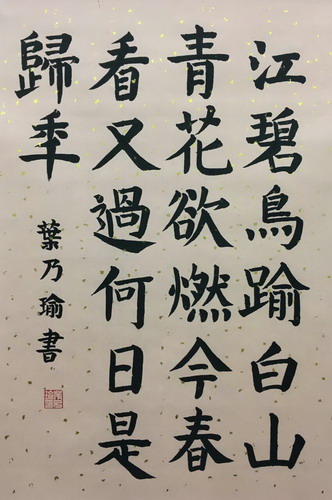 江碧鳥踰白山
青花欲燃今春
看又過何日是
歸年
葉乃瑜書